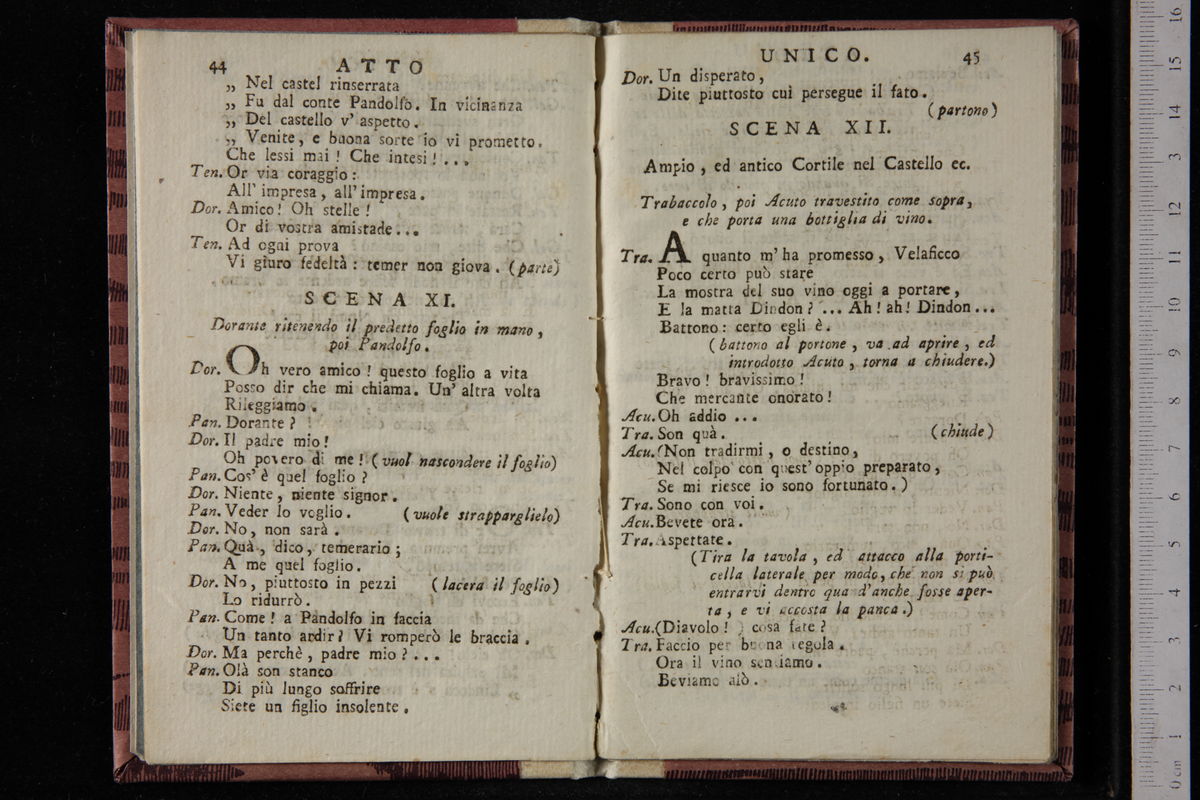 44 ATTO
„ Nel castel rinserrata
„ Fu dal conte Pandolfo. In vicinanza
„ Del castello v' aspetto.
„ Venite, e buona sorte io vi prometto.
Che lessi mai ! Che intesi ! . . .
Ten. Or via coraggio :
All' impresa, all' impresa.
Dor. Amico ! Oh stelle !
Or di vostra amistade . . .
Ten. Ad ogni prova
Vi giuro fedeltà : temer non giova. (parte)
SCENA XI.
Dorante ritenendo il predetto foglio in mano,
poi Pandolfo.
Dor. Oh vero amico ! questo foglio a vita
Posso dir che mi chiama. Un' altra volta
Rileggiamo.
Pan. Dorante ?
Dor. Il padre mio !
Oh povero di me ! (vuol nascondere il foglio)
Pan. Cos' è quel foglio ?
Dor. Niente, niente signor.
Pan. Veder lo voglio. (vuole strapparglielo)
Dor. No, non sarà.
Pan. Quà, dico, temerario ;
A me quel foglio.
Dor. No, piuttosto in pezzi (lacera il foglio)
Lo ridurrò.
Pan. Come ! a Pandolfo in faccia
Un tanto ardir ? Vi romperò le braccia.
Dor. Ma perchè, padre mio ? . . .
Pan. Olà son stanco
Di più lungo soffrire
Siete un figlio insolente.
UNICO. 45
Dor. Un disperato,
Dite piuttosto cui persegue il fato.
(partono)
SCENA XII.
Ampio, ed antico Cortile nel Castello ec.
Trabaccolo, poi Acuto travestito come sopra,
e che porta una bottiglia di vino.
Tra. A quanto m' ha promesso, Velaficco
Poco certo può stare
La mostra del suo vino oggi a portare,
E la matta Dindon ? . . . Ah ! ah ! Dindon . . .
Battono : certo egli è.
(battono al portone, va ad aprire, ed
introdotto Acuto, torna a chiudere.)
Bravo ! bravissimo !
Che mercante onorato !
Acu. Oh addio . . .
Tra. Son quà. (chiude)
Acu. (Non tradirmi, o destino,
Nel colpo con quest' oppio preparato,
Se mi riesce io sono fortunato. )
Tra. Sono con voi.
Acu. Bevete ora.
Tra. Aspettate.
(Tira la tavola, ed attacco alla porti-
cella laterale per modo, che non si può
entrarvi dentro qua d'anche fosse aper-
ta, e vi accosta la panca.)
Acu. (Diavolo ! ) cosa fate ?
Tra. Faccio per buona regola.
Ora il vino sentiamo.
Beviamo alò.
0 cm 1 2 3 4 5 6 7 8 9 10 11 12 13 14 15 16